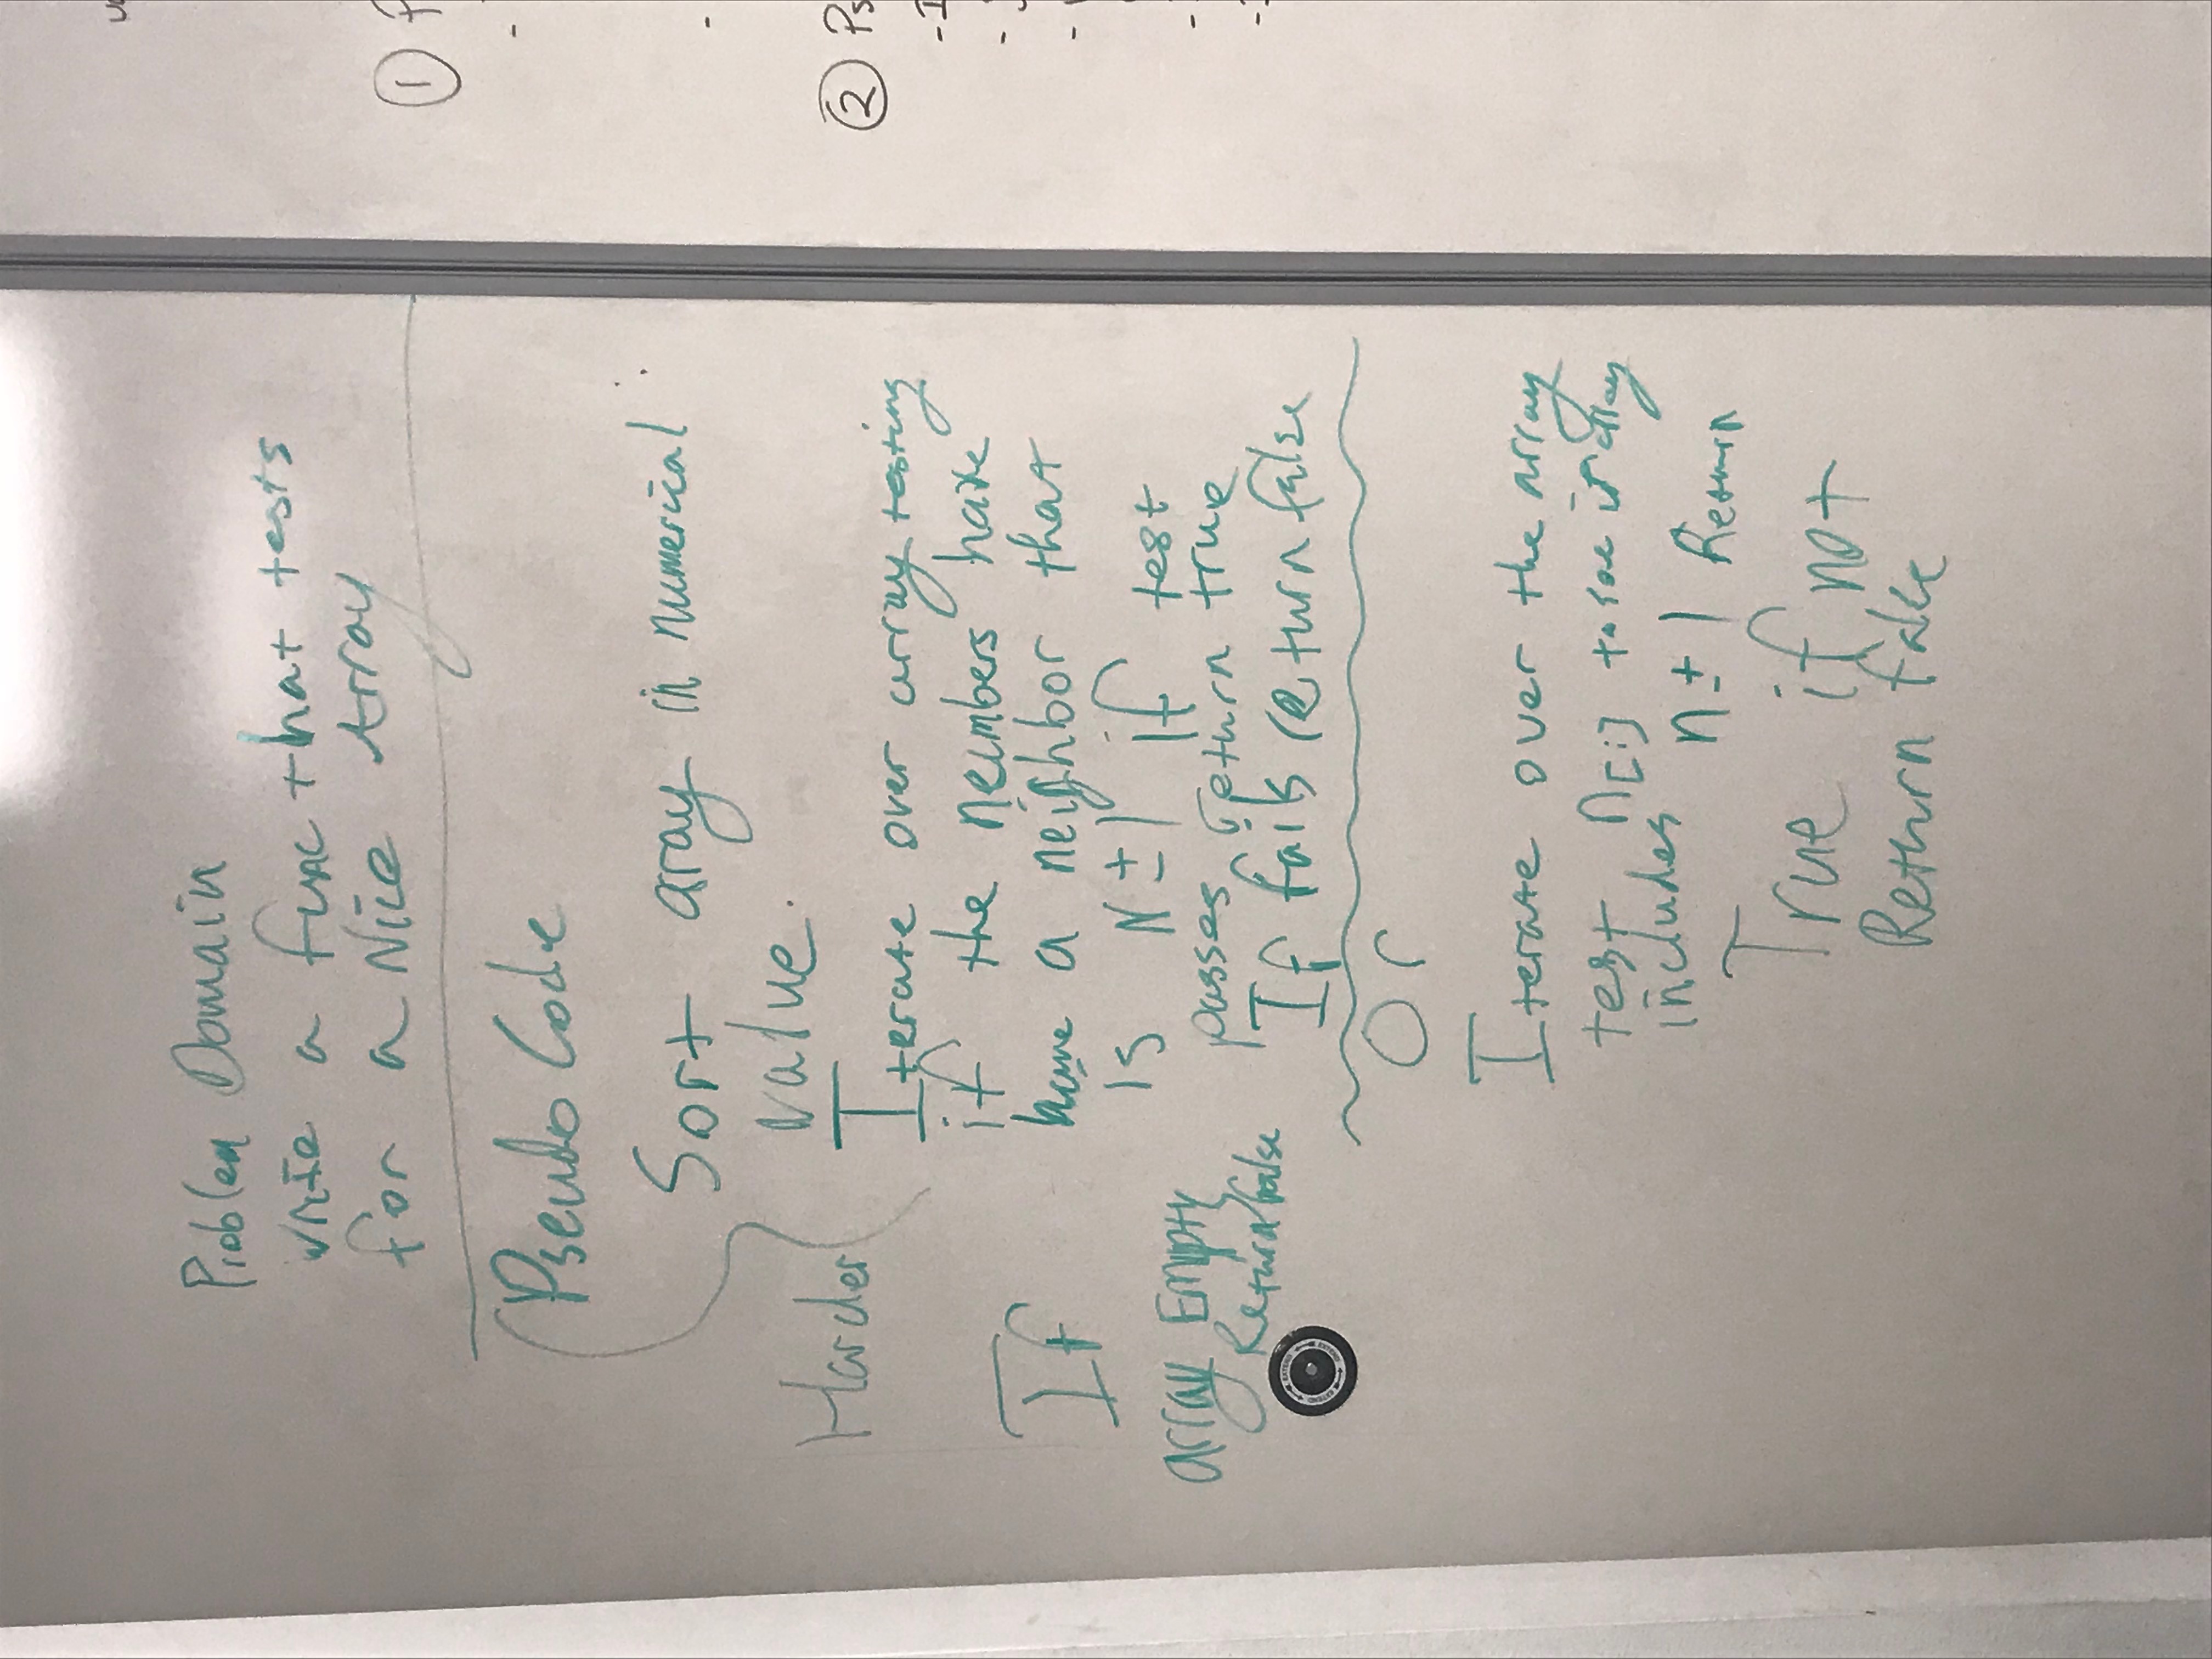 Problem Domain
write a func that tests
for a Nice Array
Pseudo Code
Sort aray in numerical
value.
Harder
Iterate over array testing
if the neumbers have
have a neighbor that
is N ± 1 if test
passes return true
If fails return false
If
array Empty
Return false
EXTEND EXTEND
Or
Iterate over the array
test n[i] to see if array
includes n ± 1 Return
True if not
Return false
1
-
-
2 Ps
- I
-
-
-
-